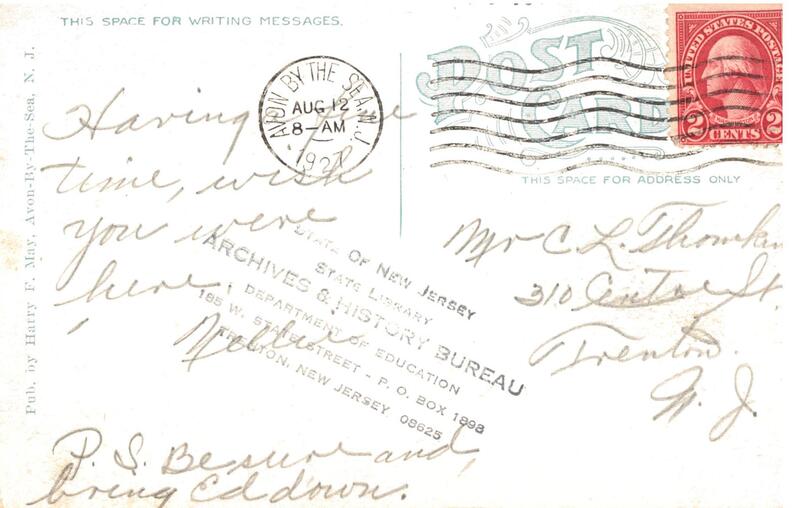 THIS SPACE FOR WRITING MESSAGES.
POST
CARD
THIS SPACE FOR ADDRESS ONLY
Pub. by Harry F. May, Avon-By-The-Sea, N. J.
AVON BY THE SEA, N.J.
AUG 12
8–AM
UNITED STATES POSTAGE
2 CENTS 2
Having fine
time, wish
you were
here,
Nellie
P. S. Be sure and
bring Ed down.
Mr C. L.
310 Centre St.
Trenton.
N. J.
STATE OF NEW JERSEY
STATE LIBRARY
ARCHIVES & HISTORY BUREAU
DEPARTMENT OF EDUCATION
185 W. STATE STREET - P. O. BOX 1898
TRENTON, NEW JERSEY 08625